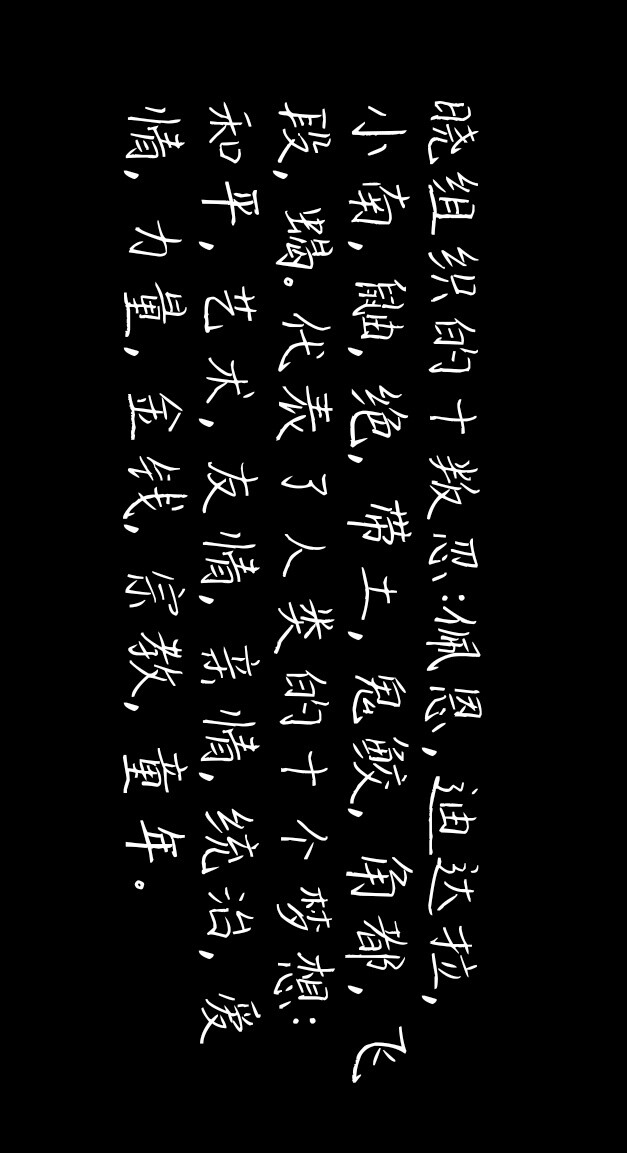 晓组织的十叛忍:佩恩,迪达拉,
小南,鼬,绝,带土,鬼鲛,角都,飞
段,蝎。代表了人类的十个梦想:
和平,艺术,友情,亲情,统治,爱
情,力量,金钱,宗教,童年。